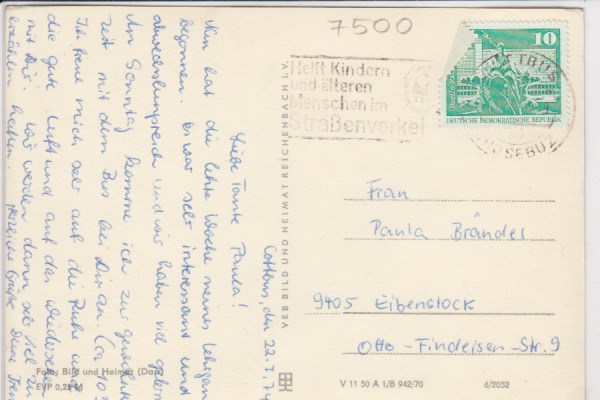 Cottbus, den 22.7.74
Liebe Tante Paula!
Nun hat die letzte Woche meines Lehrgan
begonnen. Es war sehr interessant und
abwechslungsreich und wir haben viel gelernt
Am Sonntag komme ich zur gewohnten
Zeit mit dem Bus bei Dir an. (ca 10
Ich freue mich sehr auf die Ruhe und
die gute Luft und auf das Wiedersehen
mit Dir. Wir werden dann sehr viel zu
erzählen haben. Herzliche Grüße Deine
Foto: Bild und Heimat
EVP 0,25 M
VEB BILD UND HEIMAT REICHENBACH i. V.
7500
Helft Kindern
und älteren
Menschen im
Straßenverkehr
10
DEUTSCHE DEMOKRATISCHE REPUBLIK
COTTBUS
CHOSEBUZ
Frau
Paula Brändel
9405 Eibenstock
Otto-Findeisen-Str. 9
V 11 50 A 1/B 942/70
6/2052